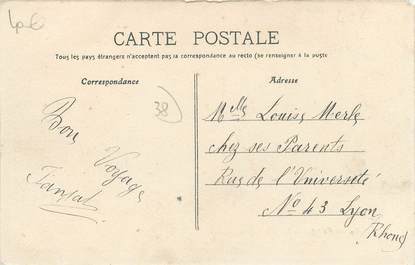 CARTE POSTALE
Tous les pays étrangers n'acceptent pas la correspondance au recto (se renseigner à la poste
Correspondance
Adresse
38
Bon
Voyage
Mlle Louise Merle
chez ses Parents
Rue de l'Université
No 43 Lyon
Rhone